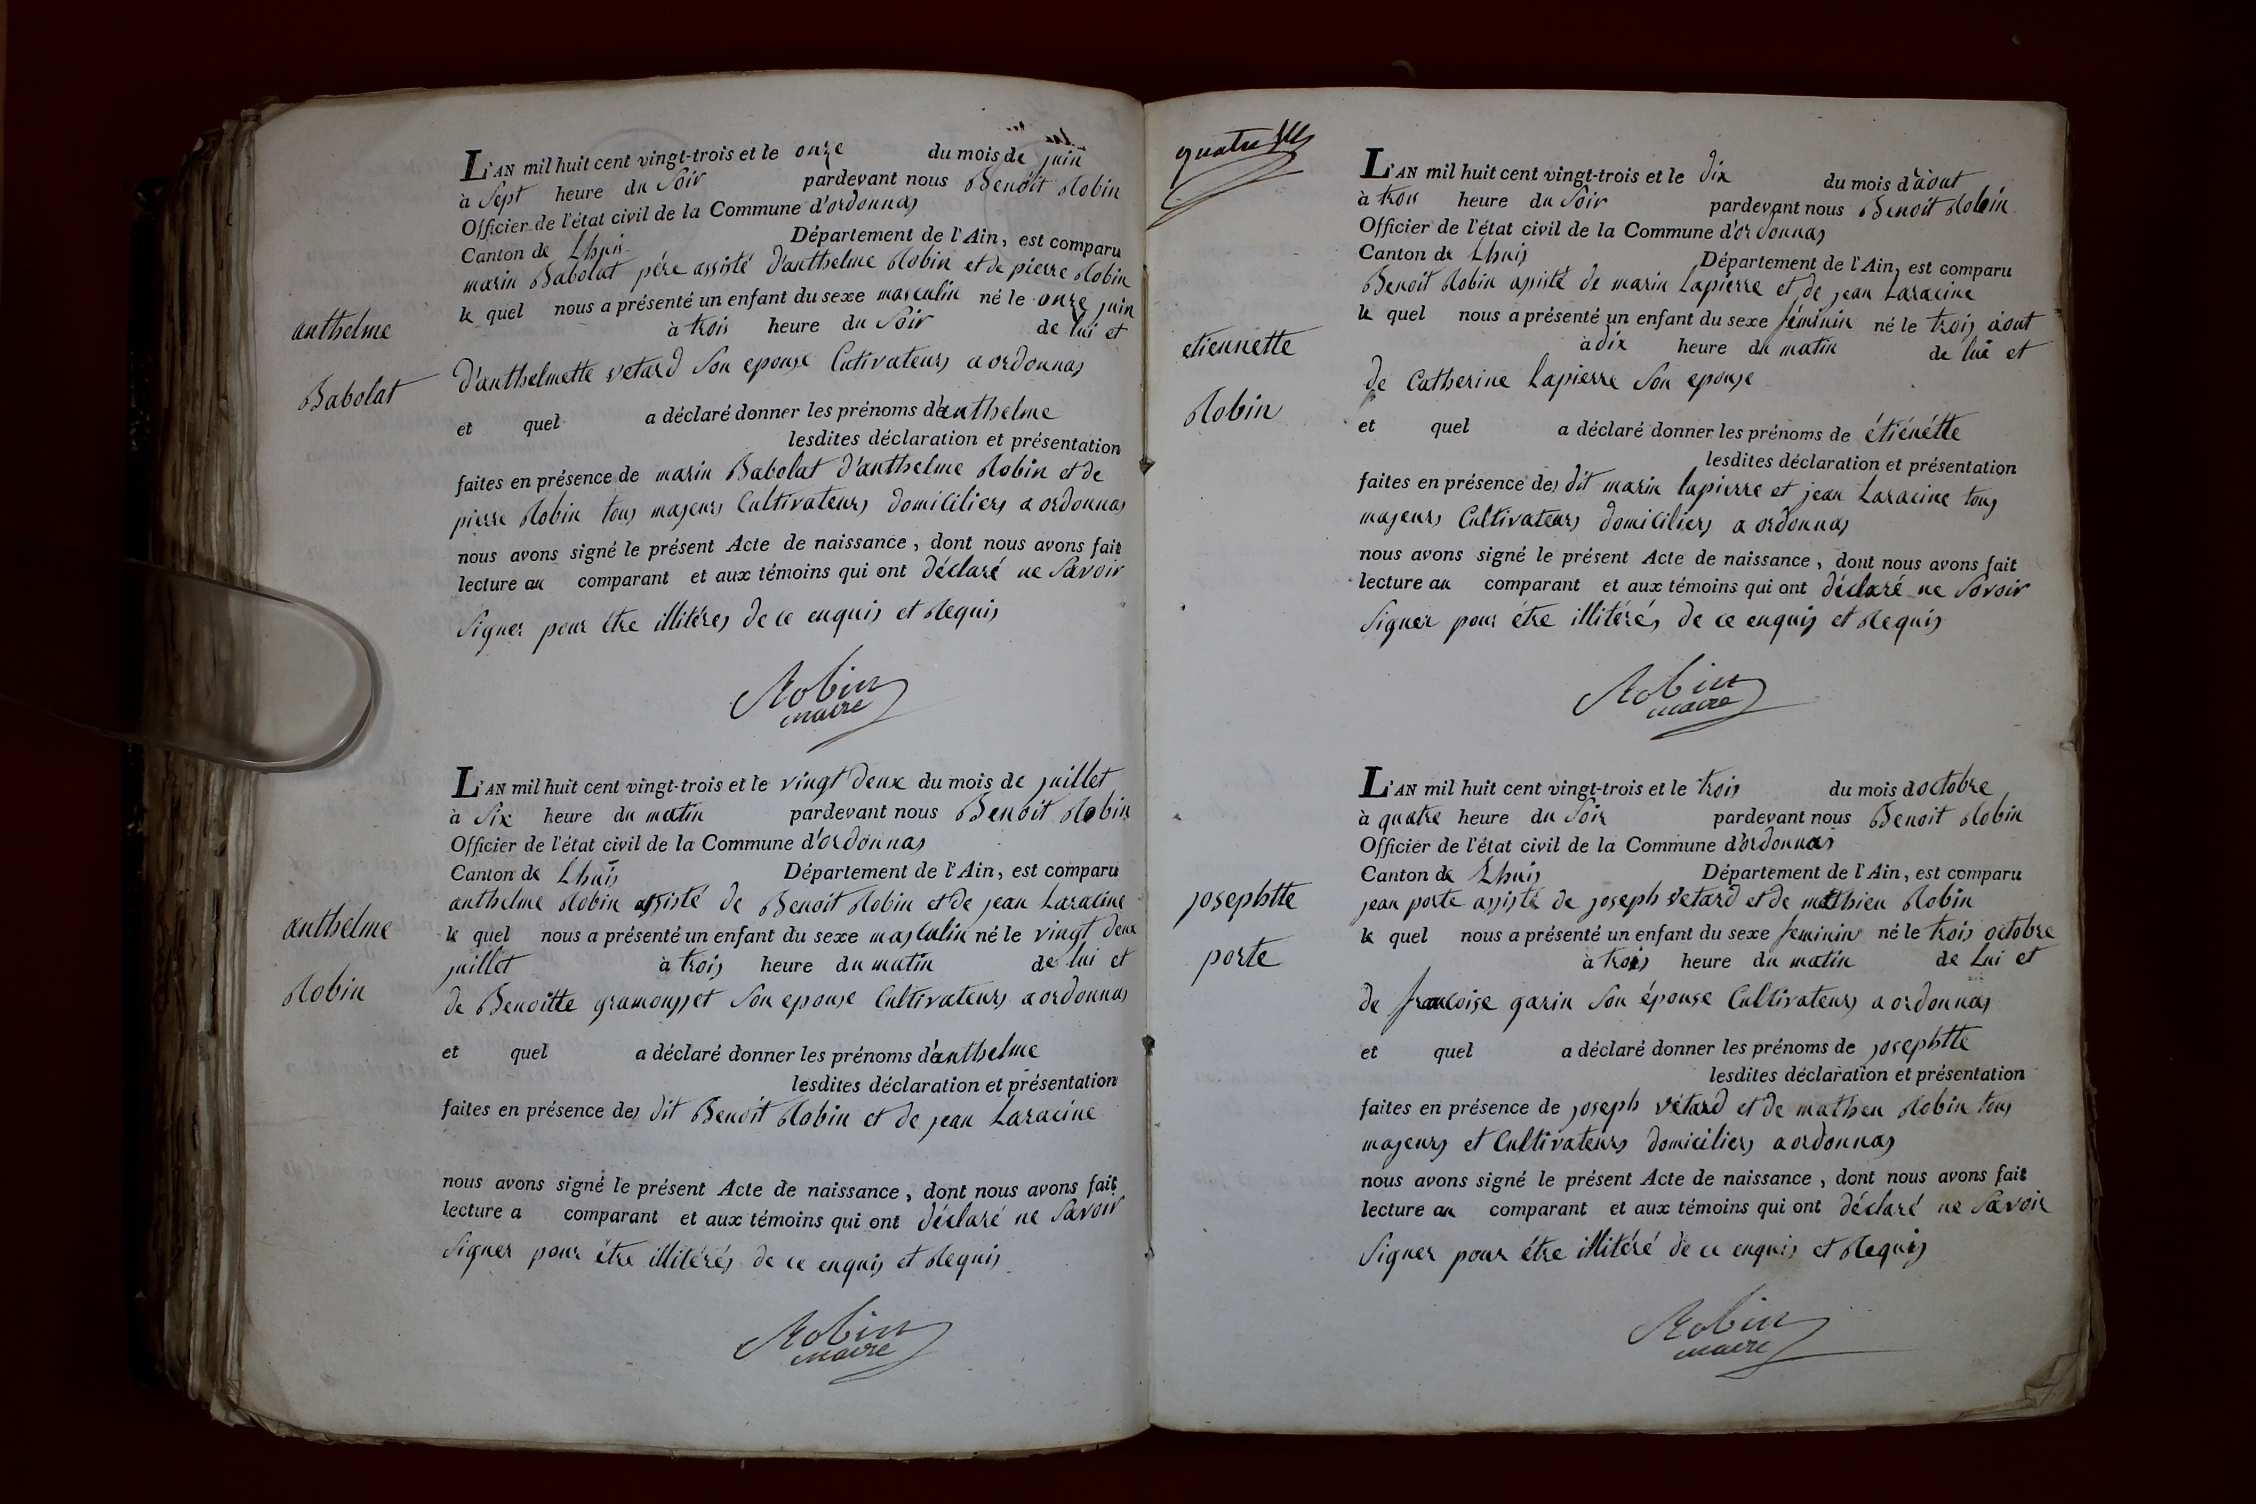 L'AN mil huit cent vingt-trois et le onze du mois de juin
à Sept heure du Soir pardevant nous Benoit Robin
Officier de l'état civil de la Commune d'ordonnas
Canton de Lhuis Département de l'Ain, est comparu
marin Babolat pére assisté d'anthelme Robin et de pierre Robin
le quel nous a présenté un enfant du sexe masculin né le onze juin
à trois heure du Soir de lui et
d'anthelmette vetard Son epouse Cutivateurs a ordonnas
et quel a déclaré donner les prénoms d'anthelme
lesdites déclaration et présentation
faites en présence de marin Babolat d'anthelme Robin et de
pierre Robin tous majeurs Cultivateurs domiciliers a ordonnas
nous avons signé le présent Acte de naissance, dont nous avons fait
lecture au comparant et aux témoins qui ont déclaré ne Savoir
Signer pour étre illitéres de ce enquis et Requis
Robin
maire
anthelme
Babolat
L'AN mil huit cent vingt-trois et le vingt deux du mois de juillet
à Six heure du matin pardevant nous Benoit Robin
Officier de l'état civil de la Commune d'ordonnas
Canton de Lhuis Département de l'Ain, est comparu
anthelme Robin assisté de Benoit Robin et de jean Laracine
le quel nous a présenté un enfant du sexe masculin né le vingt deux
juillet à trois heure du matin de lui et
de Benoitte gramousset Son epouse Cultivateurs a ordonnas
et quel a déclaré donner les prénoms d'anthelme
lesdites déclaration et présentation
faites en présence des dit Benoit Robin et de jean Laracine
nous avons signé le présent Acte de naissance, dont nous avons fait
lecture a comparant et aux témoins qui ont déclaré ne Savoir
Signer pour étre illitérés de ce enquis et Requis
Robin
maire
anthelme
Robin
quatre
L'AN mil huit cent vingt-trois et le dix du mois d'aout
à trois heure du Soir pardevant nous Benoit Robin
Officier de l'état civil de la Commune d'ordonnas
Canton de Lhuis Département de l'Ain, est comparu
Benoit Robin assisté de marin Lapierre et de jean Laracine
le quel nous a présenté un enfant du sexe féminin né le trois aout
à dix heure du matin de lui et
de Catherine Lapierre Son epouse
et quel a déclaré donner les prénoms de étiénétte
lesdites déclaration et présentation
faites en présence des dit marin lapierre et jean Laracine tous
majeurs Cultivateurs domiciliers a ordonnas
nous avons signé le présent Acte de naissance, dont nous avons fait
lecture au comparant et aux témoins qui ont déclaré ne Savoir
Signer pour étre illitérés de ce enquis et Requis
Robin
maire
etiennette
Robin
L'AN mil huit cent vingt-trois et le trois du mois d octobre
à quatre heure du Soir pardevant nous Benoit Robin
Officier de l'état civil de la Commune d'ordonnas
Canton de Lhuis Département de l'Ain, est comparu
jean porte assisté de joseph vetard et de matthieu Robin
le quel nous a présenté un enfant du sexe feminin né le trois octobre
à trois heure du matin de Lui et
de francoise garin Son épouse Cultivateurs a ordonnas
et quel a déclaré donner les prénoms de josephtte
lesdites déclaration et présentation
faites en présence de joseph vétard et de matheu Robin tous
majeurs et Cultivateurs domiciliers a ordonnas
nous avons signé le présent Acte de naissance, dont nous avons fait
lecture au comparant et aux témoins qui ont déclaré ne Savoir
Signer pour étre illitéré de ce enquis et Requis
Robin
maire
josephtte
porte